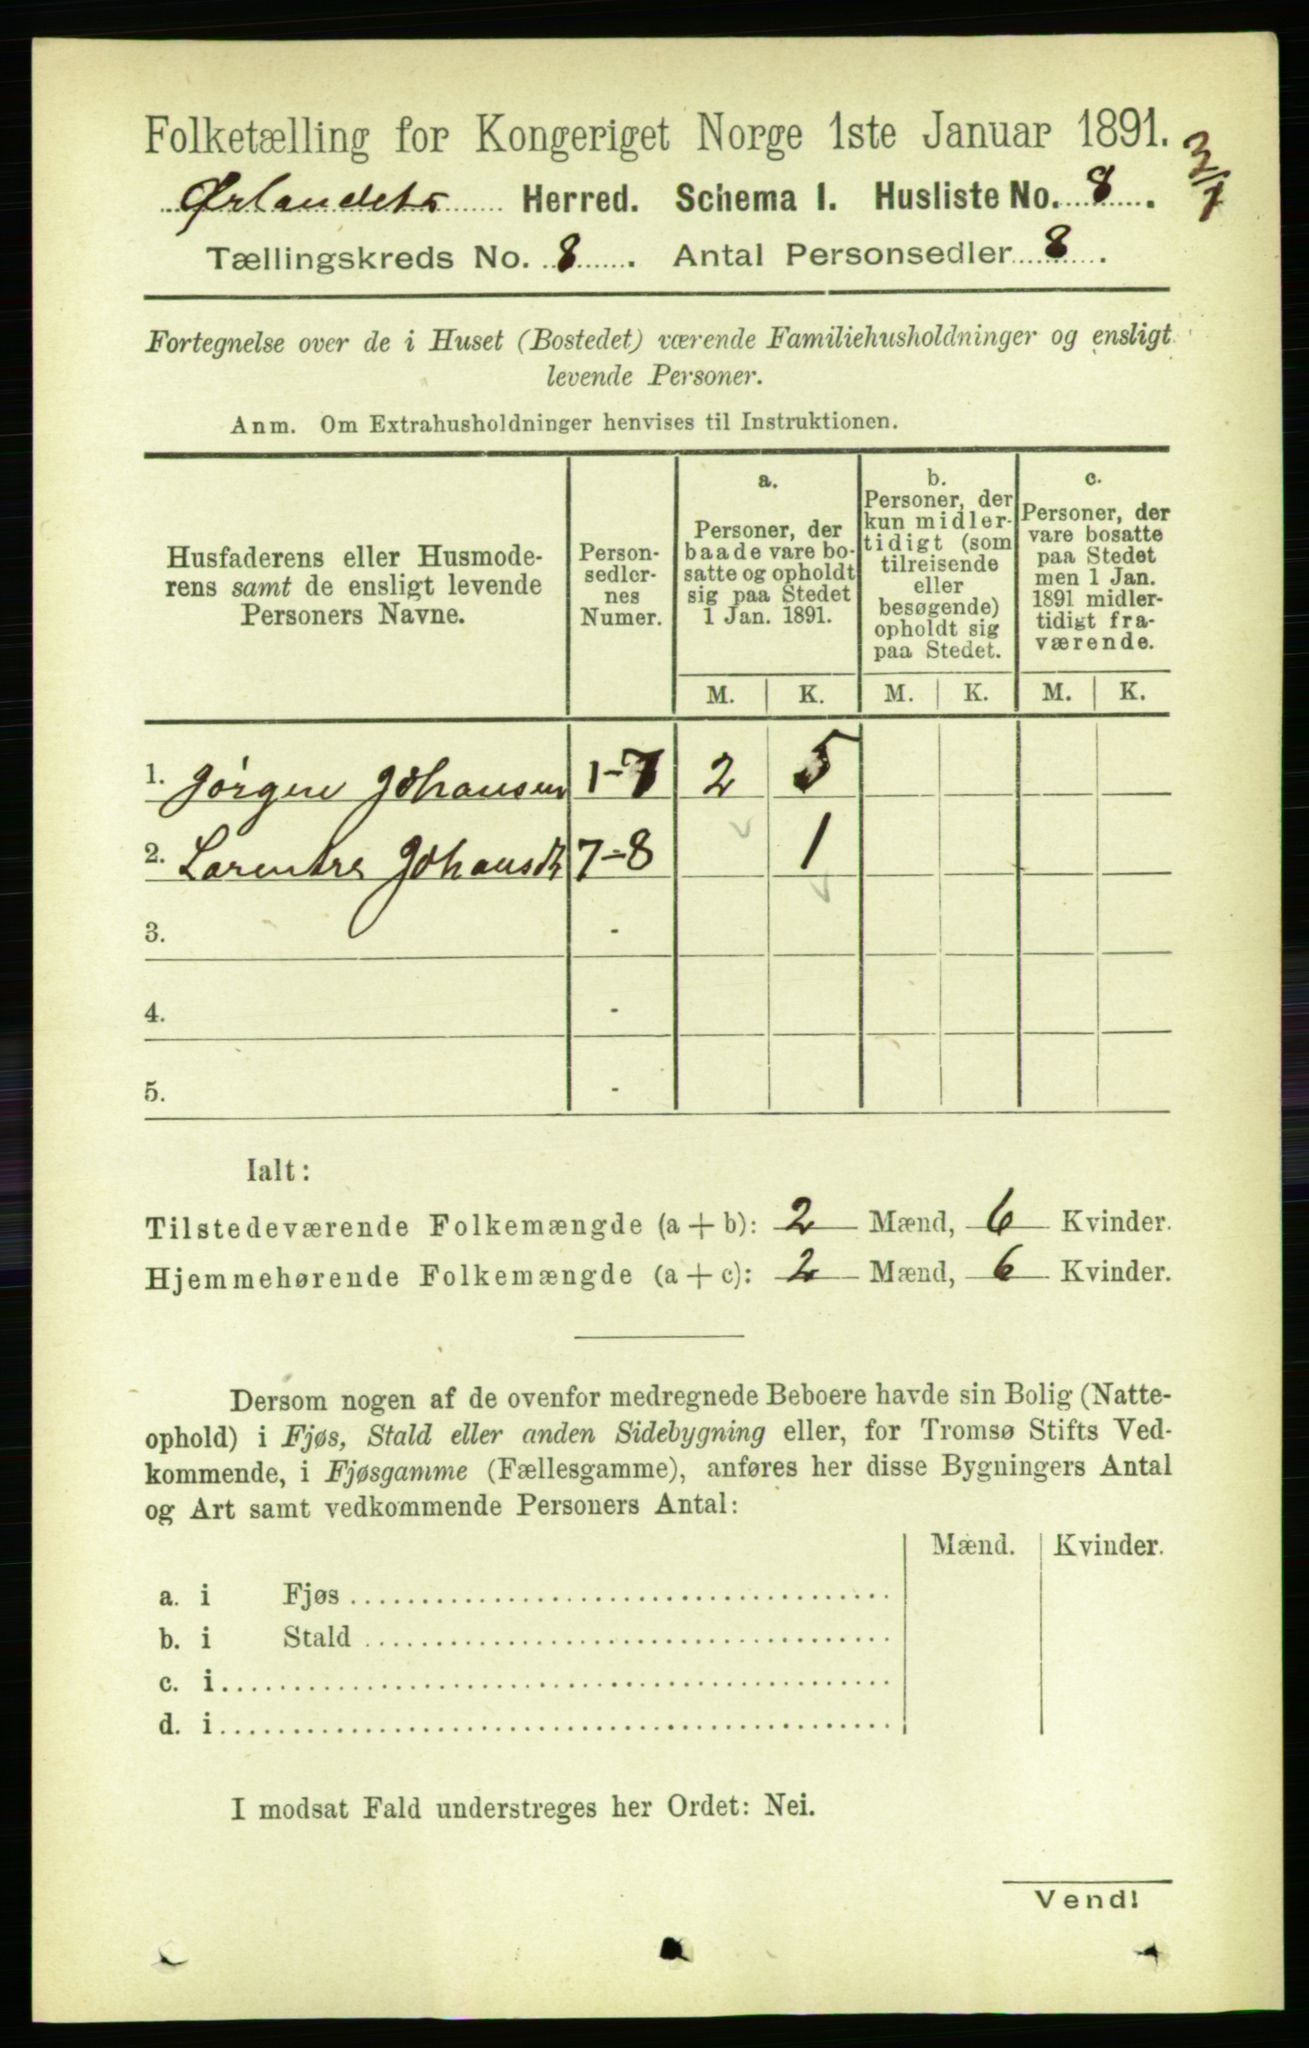 Folketælling for Kongeriget Norge 1ste Januar 1891.
3/7
Ørlandets Herred. Schema 1. Husliste No. 8.
Tællingskreds No. 8. Antal Personsedler 8.
Fortegnelse over de i Huset (Bostedet) værende Familiehusholdninger og ensligt
levende Personer.
Anm. Om Extrahusholdninger henvises til Instruktionen.
Husfaderens eller Husmode-
rens samt de ensligt levende
Personers Navne.
Person-
sedler-
nes
Numer.
a.
Personer, der
baade vare bo-
satte og opholdt
sig paa Stedet
1 Jan. 1891.
b.
Personer, der
kun midler-
tidigt (som
tilreisende
eller
besøgende)
opholdt sig
paa Stedet.
c.
Personer, der
vare bosatte
paa Stedet
men 1 Jan.
1891 midler-
tidigt fra-
værende.
M. K. M. K. M. K.
1. Jørgen Johansen 1-7 2 5
2. Johansdt 7-8 1
3. -
4. -
5. -
Ialt:
Tilstedeværende Folkemængde (a + b): 2 Mænd, 6 Kvinder.
Hjemmehørende Folkemængde (a + c): 2 Mænd, 6 Kvinder.
Dersom nogen af de ovenfor medregnede Beboere havde sin Bolig (Natte-
ophold) i Fjøs, Stald eller anden Sidebygning eller, for Tromsø Stifts Ved-
kommende, i Fjøsgamme (Fællesgamme), anføres her disse Bygningers Antal
og Art samt vedkommende Personers Antal:
Mænd. Kvinder.
a. i Fjøs
b. i Stald
c. i
d. i
I modsat Fald understreges her Ordet: Nei.
Vend!